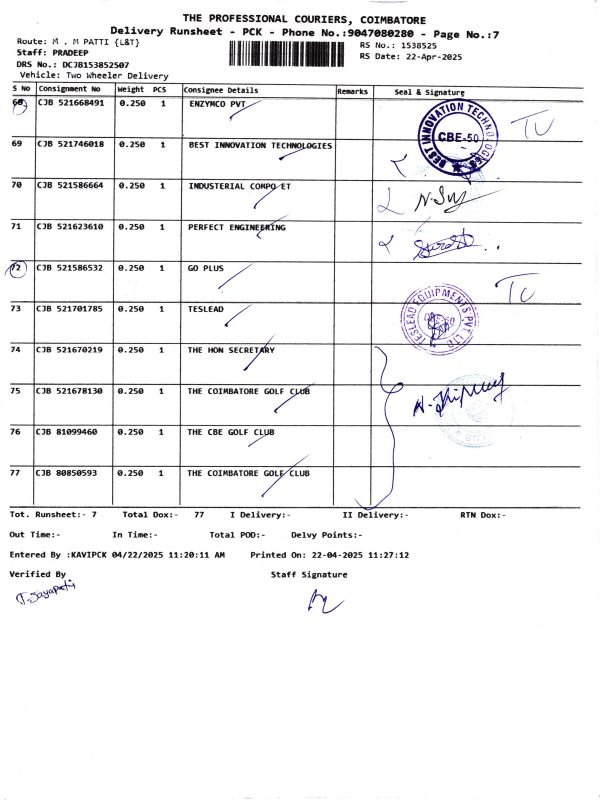 THE PROFESSIONAL COURIERS, COIMBATORE
Delivery Runsheet - PCK - Phone No.:9047080280 - Page No.:7
Route: M . M PATTI {L&T} RS No.: 1538525
Staff: PRADEEP RS Date: 22-Apr-2025
DRS No.: DCJB153852507
Vehicle: Two Wheeler Delivery
S No Consignment No Weight PCS Consignee Details Remarks Seal & Signature
68 CJB 521668491 0.250 1 ENZYMCO PVT
BEST INNOVATION TECHNOLOGIES
CBE-50
69 CJB 521746018 0.250 1 BEST INNOVATION TECHNOLOGIES
70 CJB 521586664 0.250 1 INDUSTERIAL COMPO ET
71 CJB 521623610 0.250 1 PERFECT ENGINEERING
72 CJB 521586532 0.250 1 GO PLUS
73 CJB 521701785 0.250 1 TESLEAD
TESLEAD EQUIPMENTS PVT. LTD
74 CJB 521670219 0.250 1 THE HON SECRETARY
75 CJB 521678130 0.250 1 THE COIMBATORE GOLF CLUB
76 CJB 81099460 0.250 1 THE CBE GOLF CLUB
77 CJB 80850593 0.250 1 THE COIMBATORE GOLF CLUB
Tot. Runsheet:- 7 Total Dox:- 77 I Delivery:- II Delivery:- RTN Dox:-
Out Time:- In Time:- Total POD:- Delvy Points:-
Entered By :KAVIPCK 04/22/2025 11:20:11 AM Printed On: 22-04-2025 11:27:12
Verified By Staff Signature